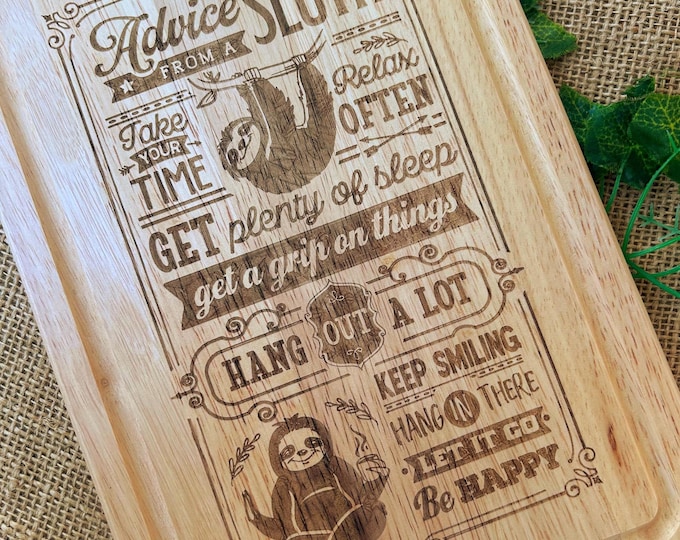 Advice
FROM A
SLOTH
Take
YOUR
TIME
Relax
OFTEN
GET plenty of sleep
get a grip on things
HANG OUT A LOT
KEEP SMILING
HANG IN THERE
LET IT GO
Be HAPPY